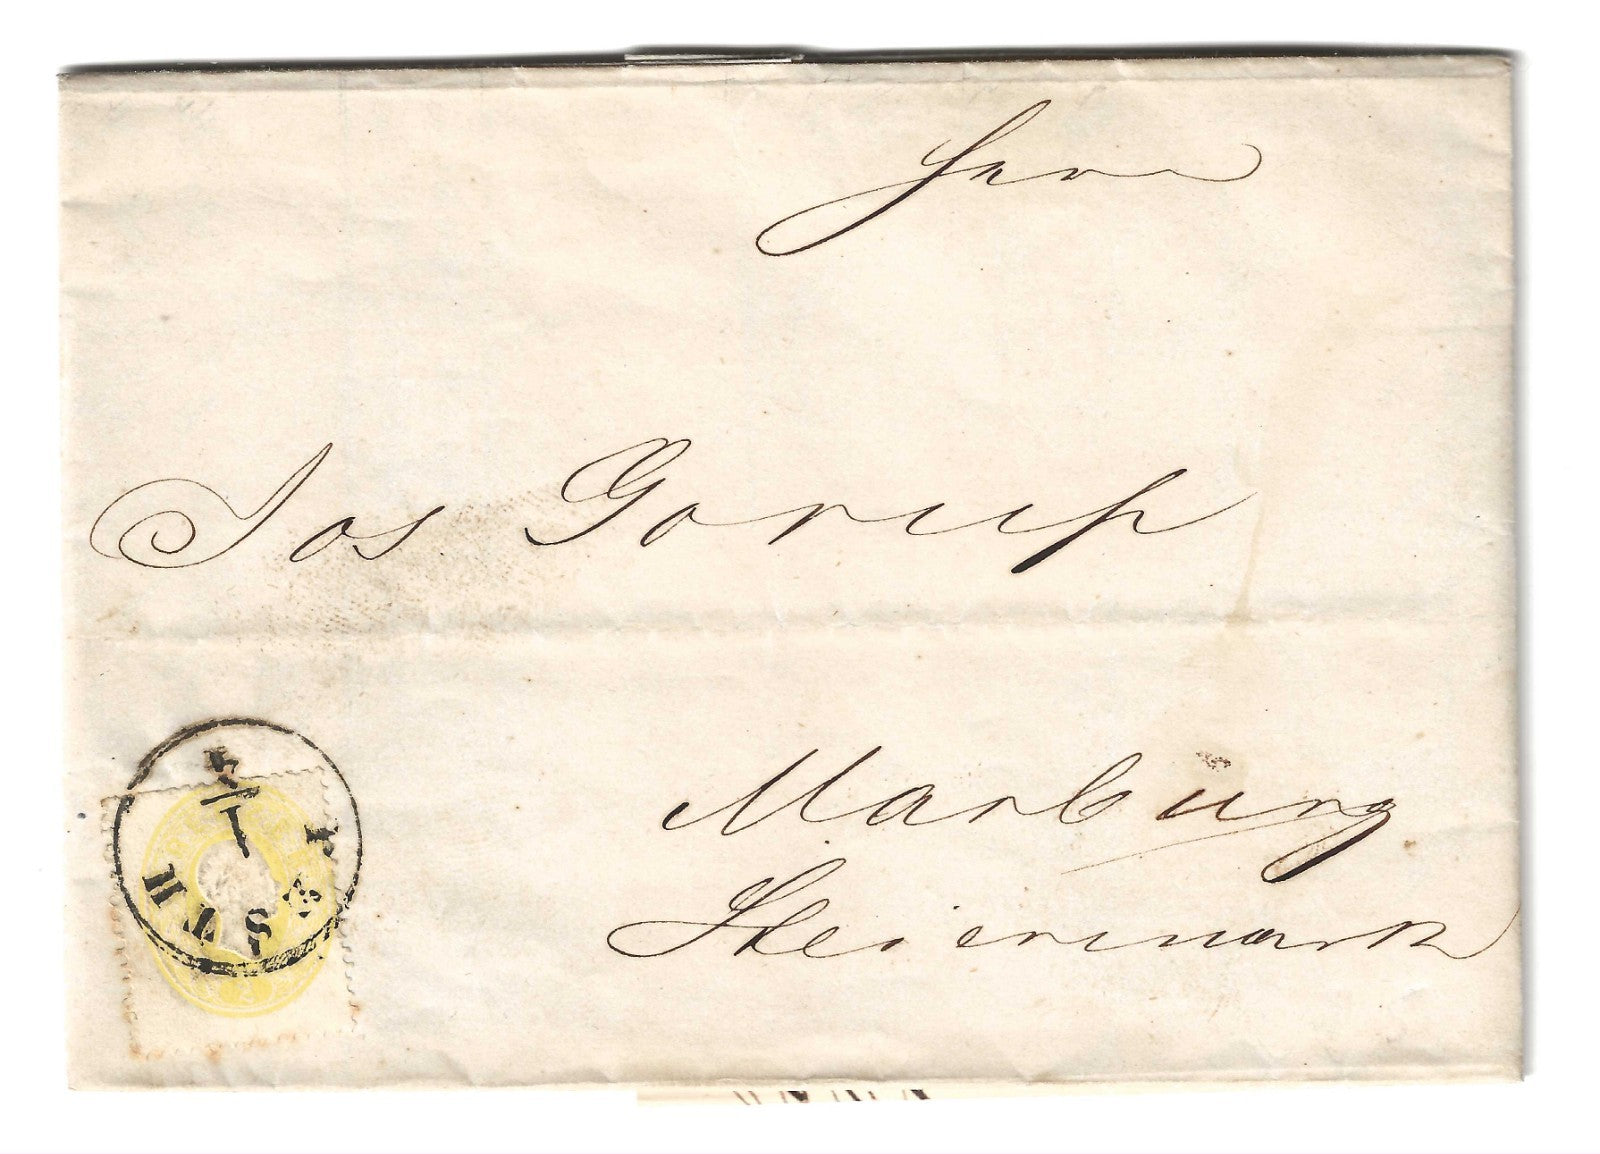 Herrn
Jos Gorup
Marburg
Steiermark
PESTH